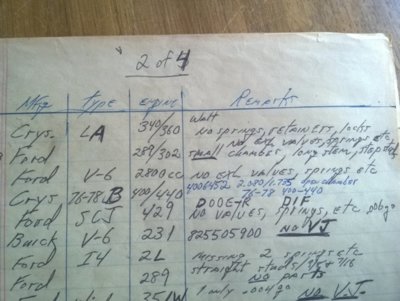 2 of 4
Mfg Type engine Remarks
Watt
Crys. LA 340/360 No springs, retainers, locks
Ford 289/302 no ext. valves, springs etc
small chamber, long stem,
Ford V-6 2800cc No ext. valves, springs etc
4006452 2.080/1.75 chamber
Crys. 76-78 B 400/440 76-78 400-440
DOOER DIF
Ford SCJ 429 No values, springs, etc.
Buick V-6 231 825505900 No VJ
Ford I4 2L missing 2 springs etc
Ford 289 straight studs, 3/8 x 7/16
No parts
351W 1 only .004 90 No VJ